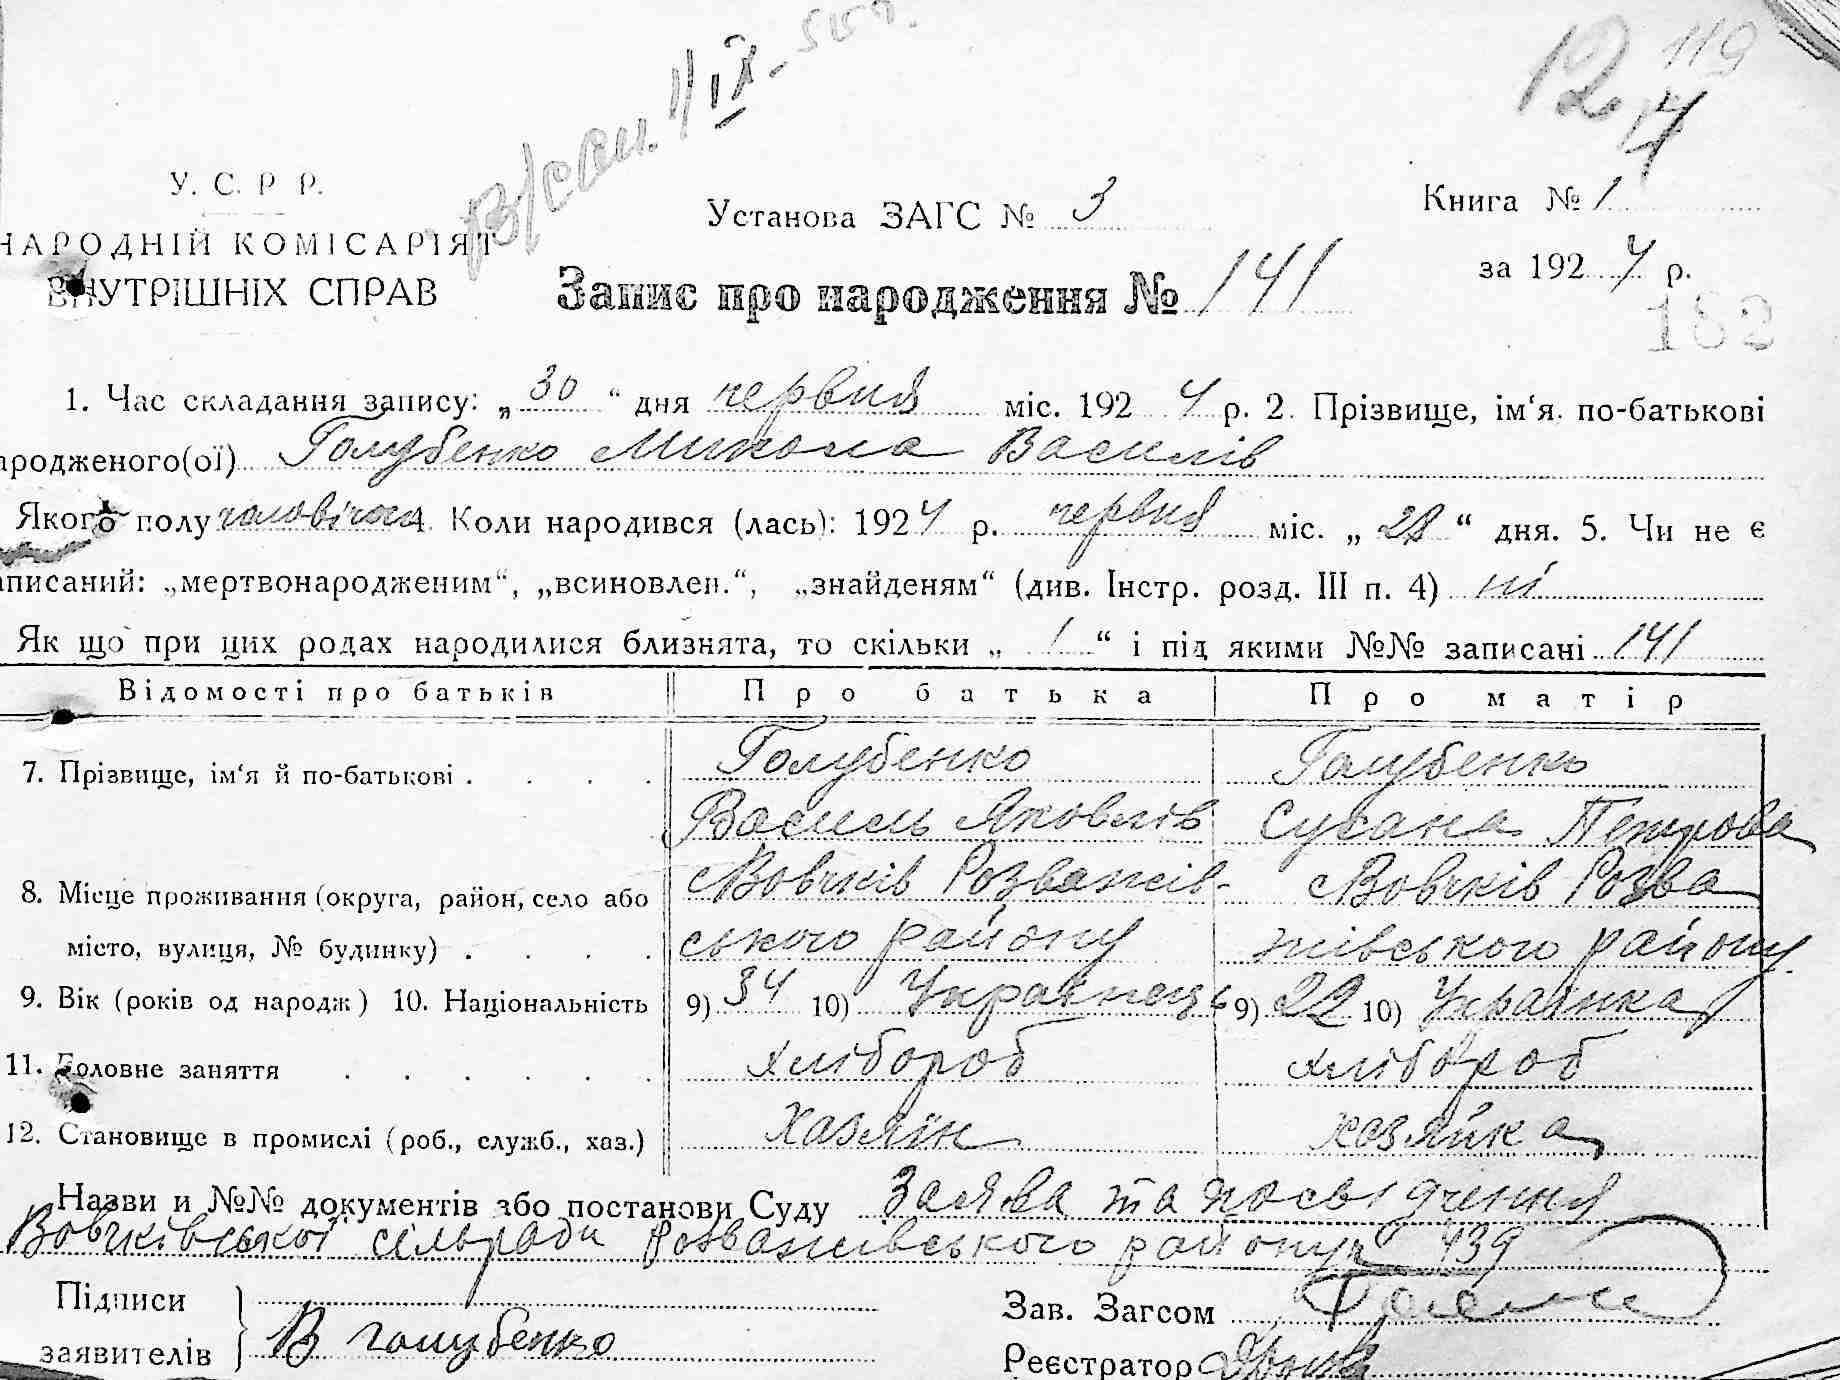 119
12
У. С. Р Р.
Установа ЗАГС № 3
Книга № 1
НАРОДНІЙ КОМІСАРІЯТ
за 1924 р.
ВНУТРІШНІХ СПРАВ
Запис про народження № 141
182
1. Час складання запису: „30“ дня червня міс. 1924 р. 2. Прізвище, ім‘я, по-батькові
ародженого(ої) Голубенко Микола Василів
Якого полу чоловічого 4. Коли народився (лась): 1924 р. червня міс. „28“ дня. 5. Чи не є
аписаний: „мертвонародженим“, „всиновлен.“, „знайденям“ (див. Інстр. розд. III п. 4) ні
Як що при цих родах народилися близнята, то скільки „1“ і під якими №№ записані 141
Відомості про батьків Про батька Про матір
7. Прізвище, ім‘я й по-батькові . . . . Голубенко Голубенко
Василь Яковлів Сусана Петрова
8. Місце проживання (округа, район, село або Вовчків Розважів- Вовчків Розва
місто, вулиця, № будинку) . . . . ського району жівського району
9. Вік (років од народж) 10. Національність 9) 34 10) Українець 9) 22 10) Українка
11. Головне заняття . . . . . . хлібороб хлібороб
12. Становище в промислі (роб., служб., хаз.) хазяїн хазяйка
Назви и №№ документів або постанови Суду Заява та посвідчення
Вовчківської сільради Розважівського району 439
Підписи
Зав. Загсом
заявителів В голубенко
Реєстратор